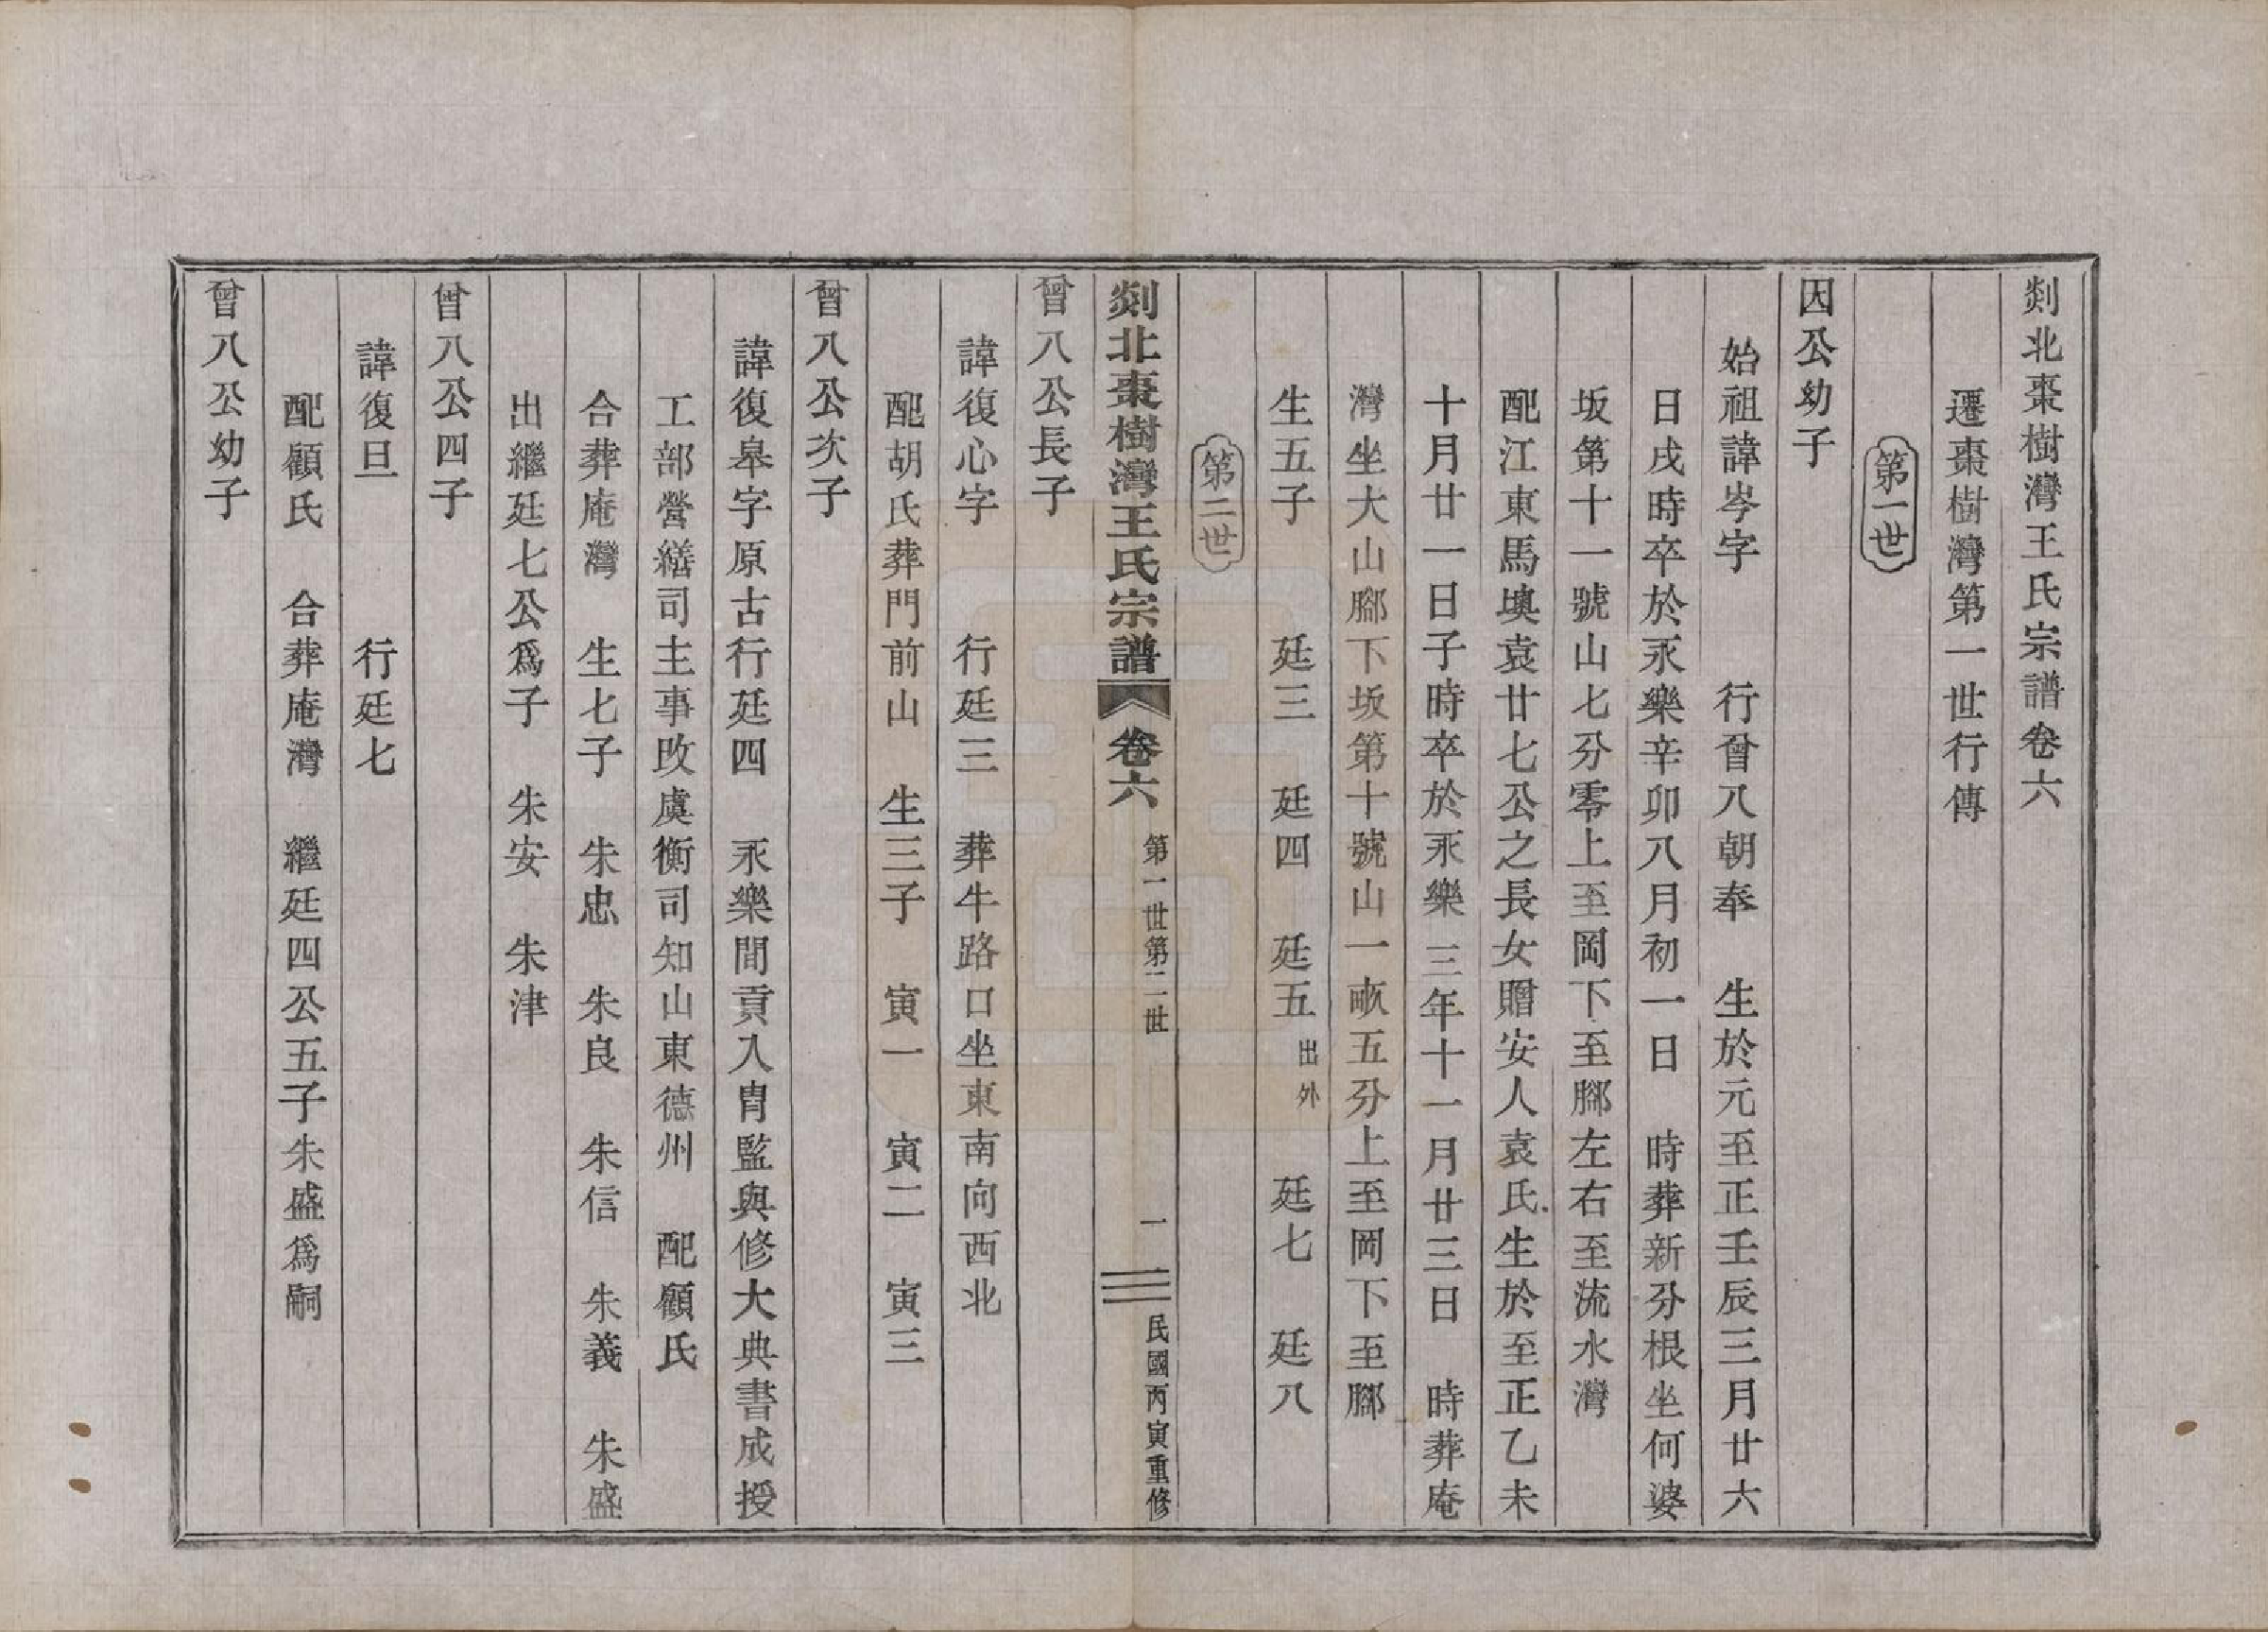 剡北棗樹灣王氏宗譜卷六
遷棗樹灣第一世行傳
第一世
因公幼子
始祖諱岑字　行曾八朝奉　生於元至正壬辰三月廿六
日戌時卒於永樂辛卯八月初一日　時葬新分根坐何婆
坂第十一號山七分零上至岡下至腳左右至流水灣
配江東馬墺袁廿七公之長女贈安人袁氏生於至正乙未
十月廿一日子時卒於永樂三年十一月廿三日　時葬庵
灣坐大山腳下坂第十號山一畝五分上至岡下至腳
生五子　廷三　廷四　廷五出外　廷七　廷八
第二世
剡北棗樹灣王氏宗譜　卷六　第一世第二世　一　民國丙寅重修
曾八公長子
諱復心字　行廷三　葬牛路口坐東南向西北
配胡氏葬門前山　生三子　寅一　寅二　寅三
曾八公次子
諱復皋字原古行廷四　永樂間貢入胄監與修大典書成授
工部營繕司主事改虞衡司知山東德州　配顧氏
合葬庵灣　生七子　朱忠　朱良　朱信　朱義　朱盛
出繼廷七公爲子　朱安　朱津
曾八公四子
諱復旦　行廷七
配顧氏　合葬庵灣　繼廷四公五子朱盛爲嗣
曾八公幼子